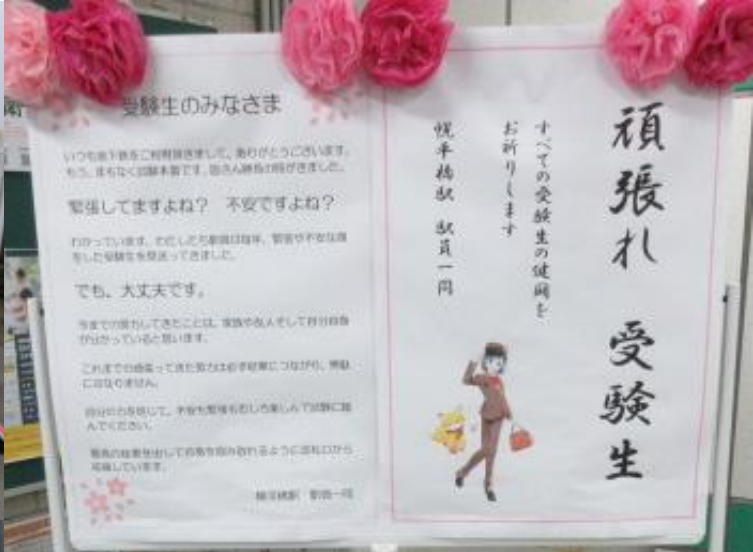 受験生のみなさま
いつも地下鉄をご利用頂きまして、ありがとうございます。
もう、まもなく試験本番です。皆さん勝負の時がきました。
緊張してますよね？ 不安ですよね？
わかっています。わたしたち駅員は毎年、緊張や不安な顔
をした受験生を見送ってきました。
でも、大丈夫です。
今までの努力してきたことは、家族や友人そして自分自身
が分かっていると思います。
これまでの頑張ってきた努力は必ず結果につながり、無駄
にはなりません。
自分の力を信じて、不安も緊張もむしろ楽しんで試験に臨
んでください。
最高の結果を出して合格を掴み取れるように改札口から
応援しています。
幌平橋駅 駅員一同
頑張れ 受験生
すべての受験生の健闘を
お祈りします
幌平橋駅 駅員一同